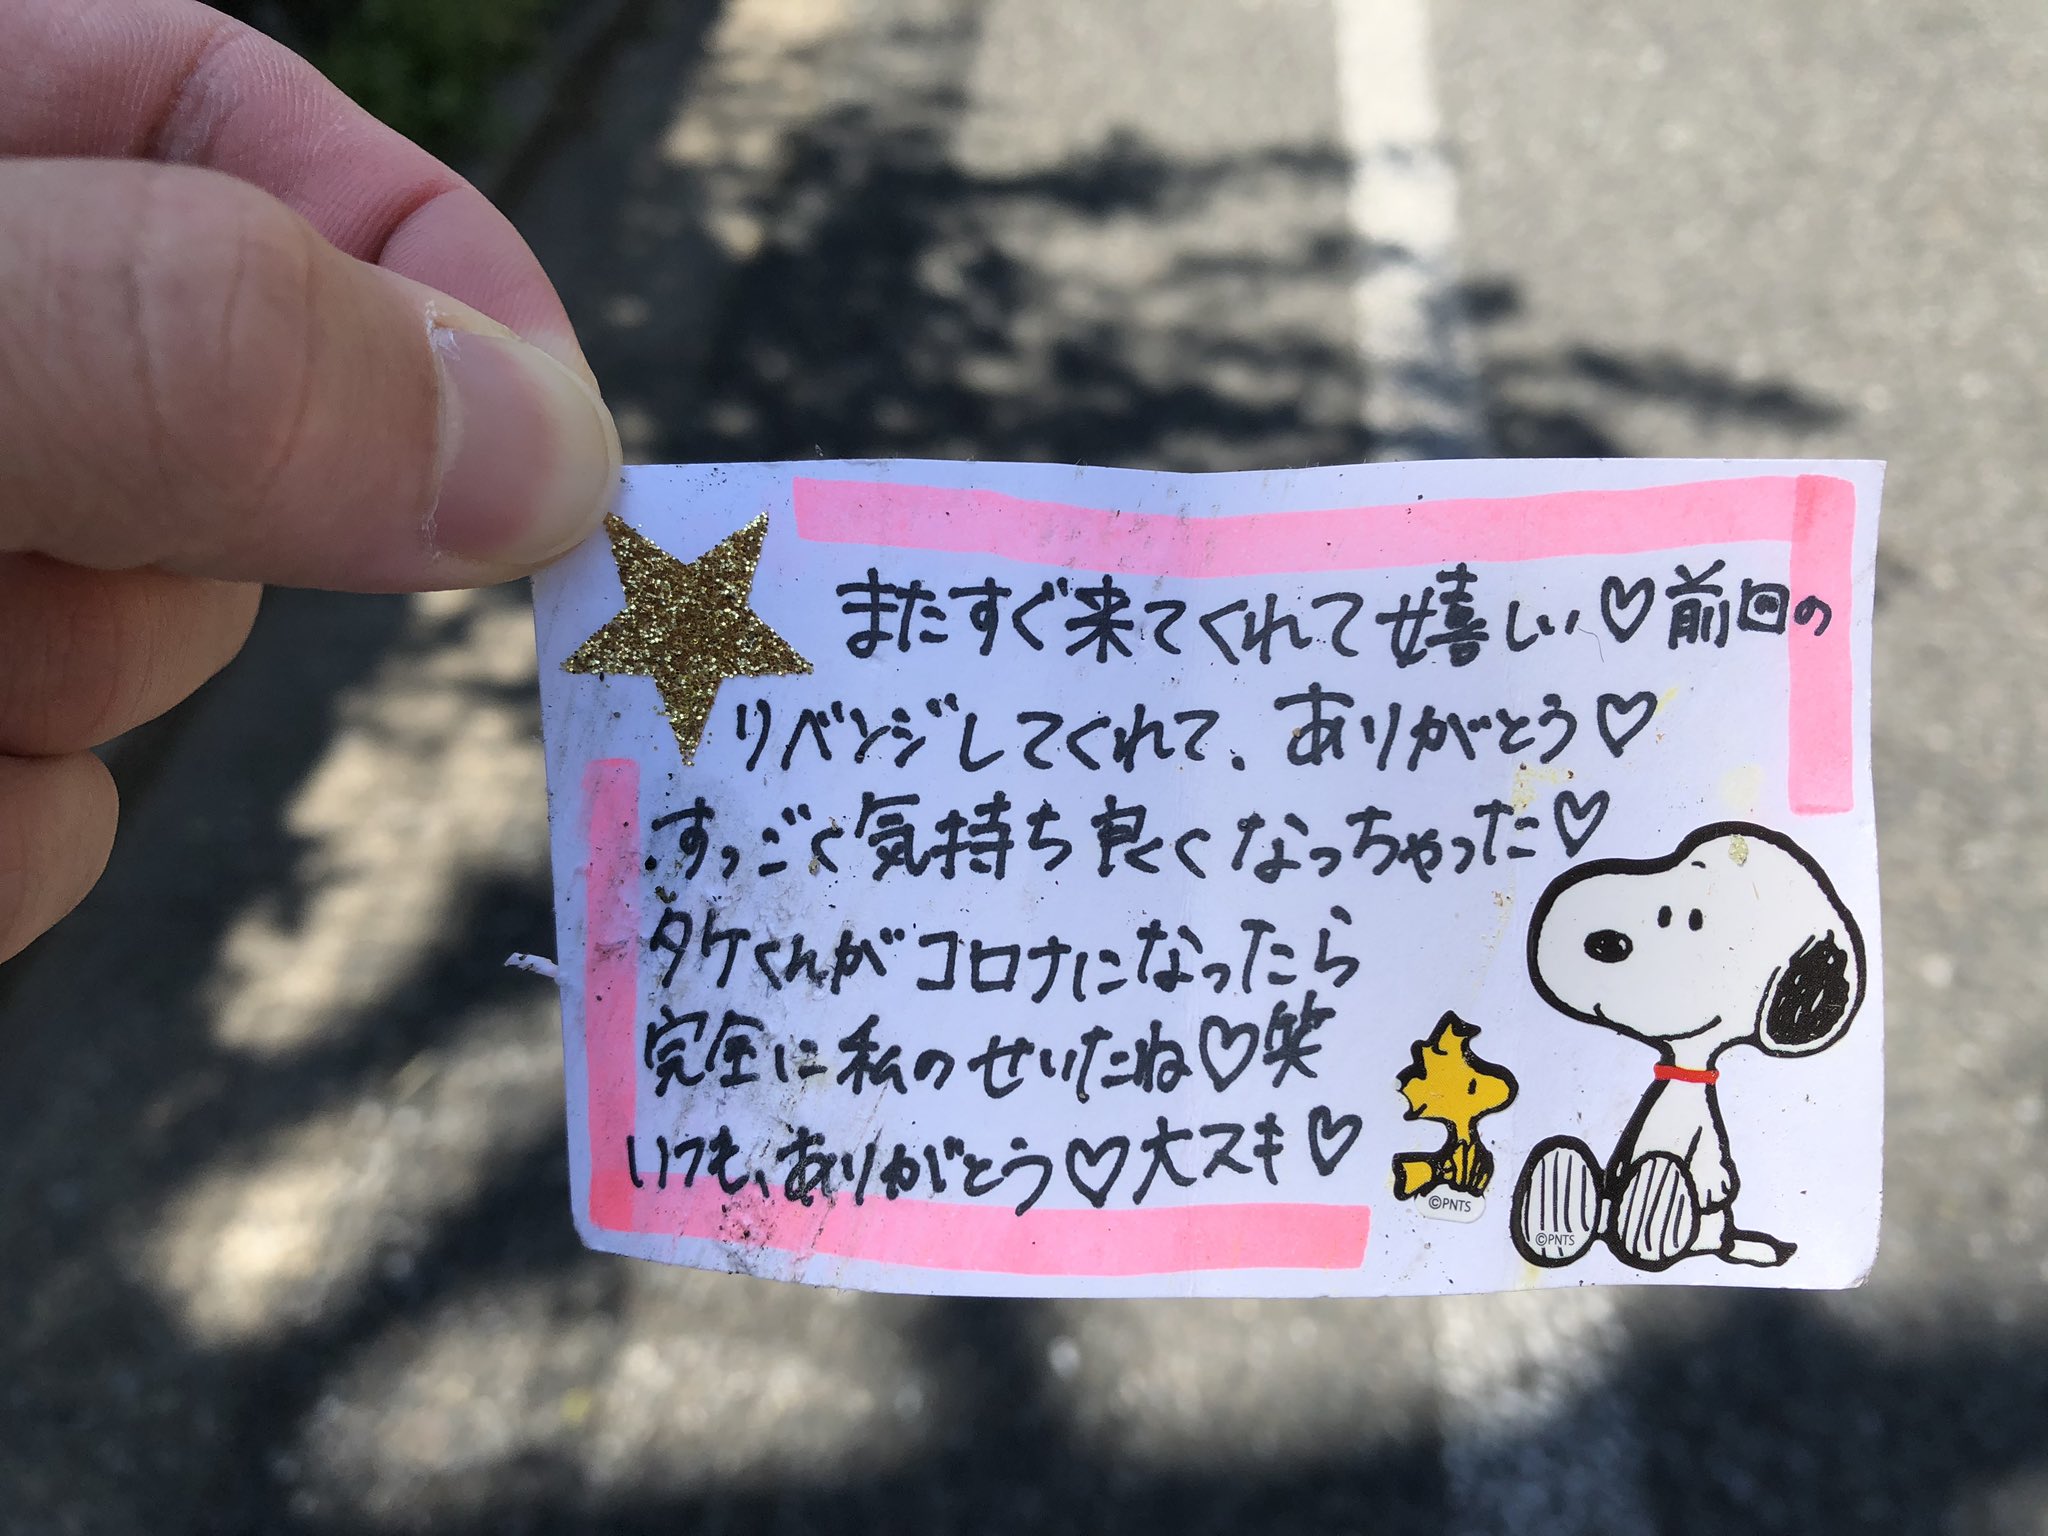 またすぐ来てくれて嬉しい♡前回の
リベンジしてくれて、ありがとう♡
すっごく気持ち良くなっちゃった♡
タケくんがコロナになったら
完全に私のせいだね♡笑
いつも、ありがとう♡大スキ♡
©PNTS
©PNTS